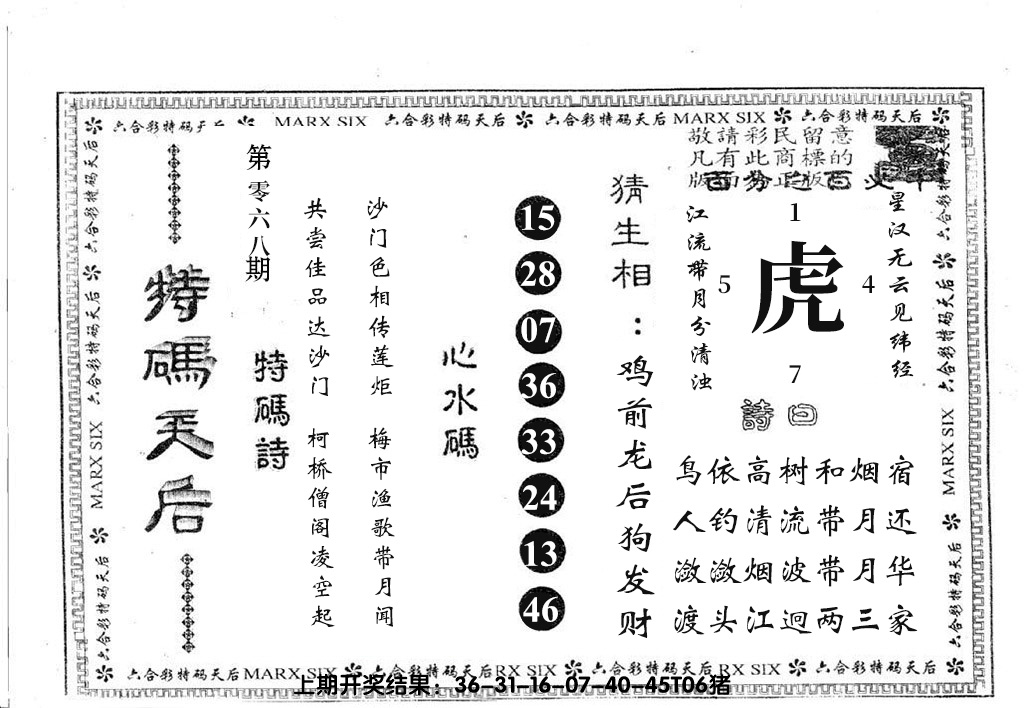 六合彩特码天后
MARX SIX
六合彩特码天后
六合彩特码天后
MARX SIX
六合彩特码天后
敬請彩民留意
凡有此商標的
特碼天后
第零六八期
特碼詩
共尝佳品达沙门
柯桥僧阁凌空起
沙门色相传莲炬
梅市渔歌带月闻
心水碼
15
28
07
36
33
24
13
46
猜生相：鸡前龙后狗发财
江流带月分清浊
1
5
虎
4
7
星汉无云见纬经
詩曰
鸟依高树和烟宿
人钓清流带月还
潋潋烟波带月华
渡头江迥两三家
六合彩特码天后
MARX SIX
六合彩特码天后
MARX SIX
六合彩特码天后
六合彩特码天后
MARX SIX
六合彩特码天后
六合彩特码天后MARX SIX
六合彩特码天后
RX SIX
六合彩特码天后
RX SIX
六合彩特码天后
上期开奖结果：36-31-16-07-40-45T06猪